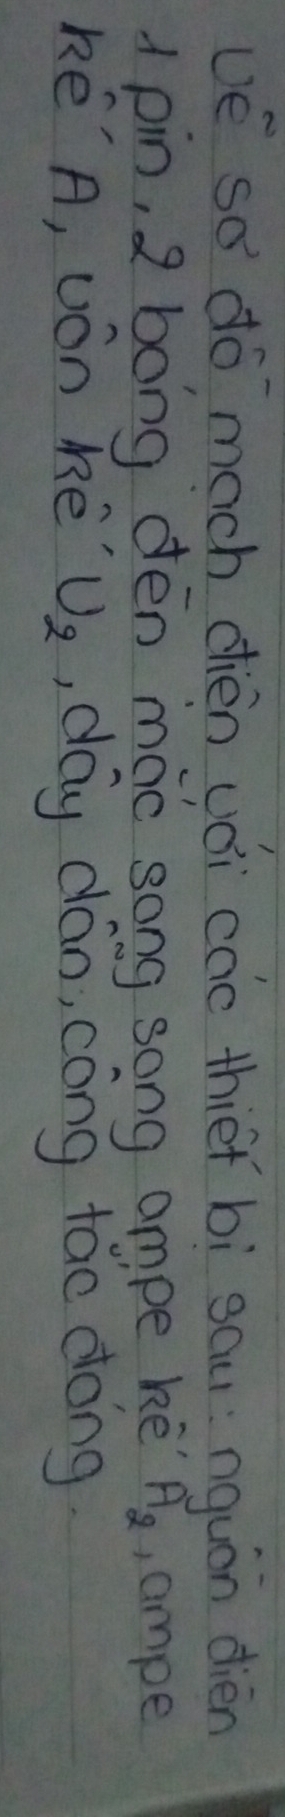 Vẽ sơ đồ mạch điện với các thiết bị sau: nguồn điện
1 pin, 2 bóng đèn mắc song song ampe kế A₂, ampe
kế A, vôn kế V₂, dây dẫn, công tắc đóng.